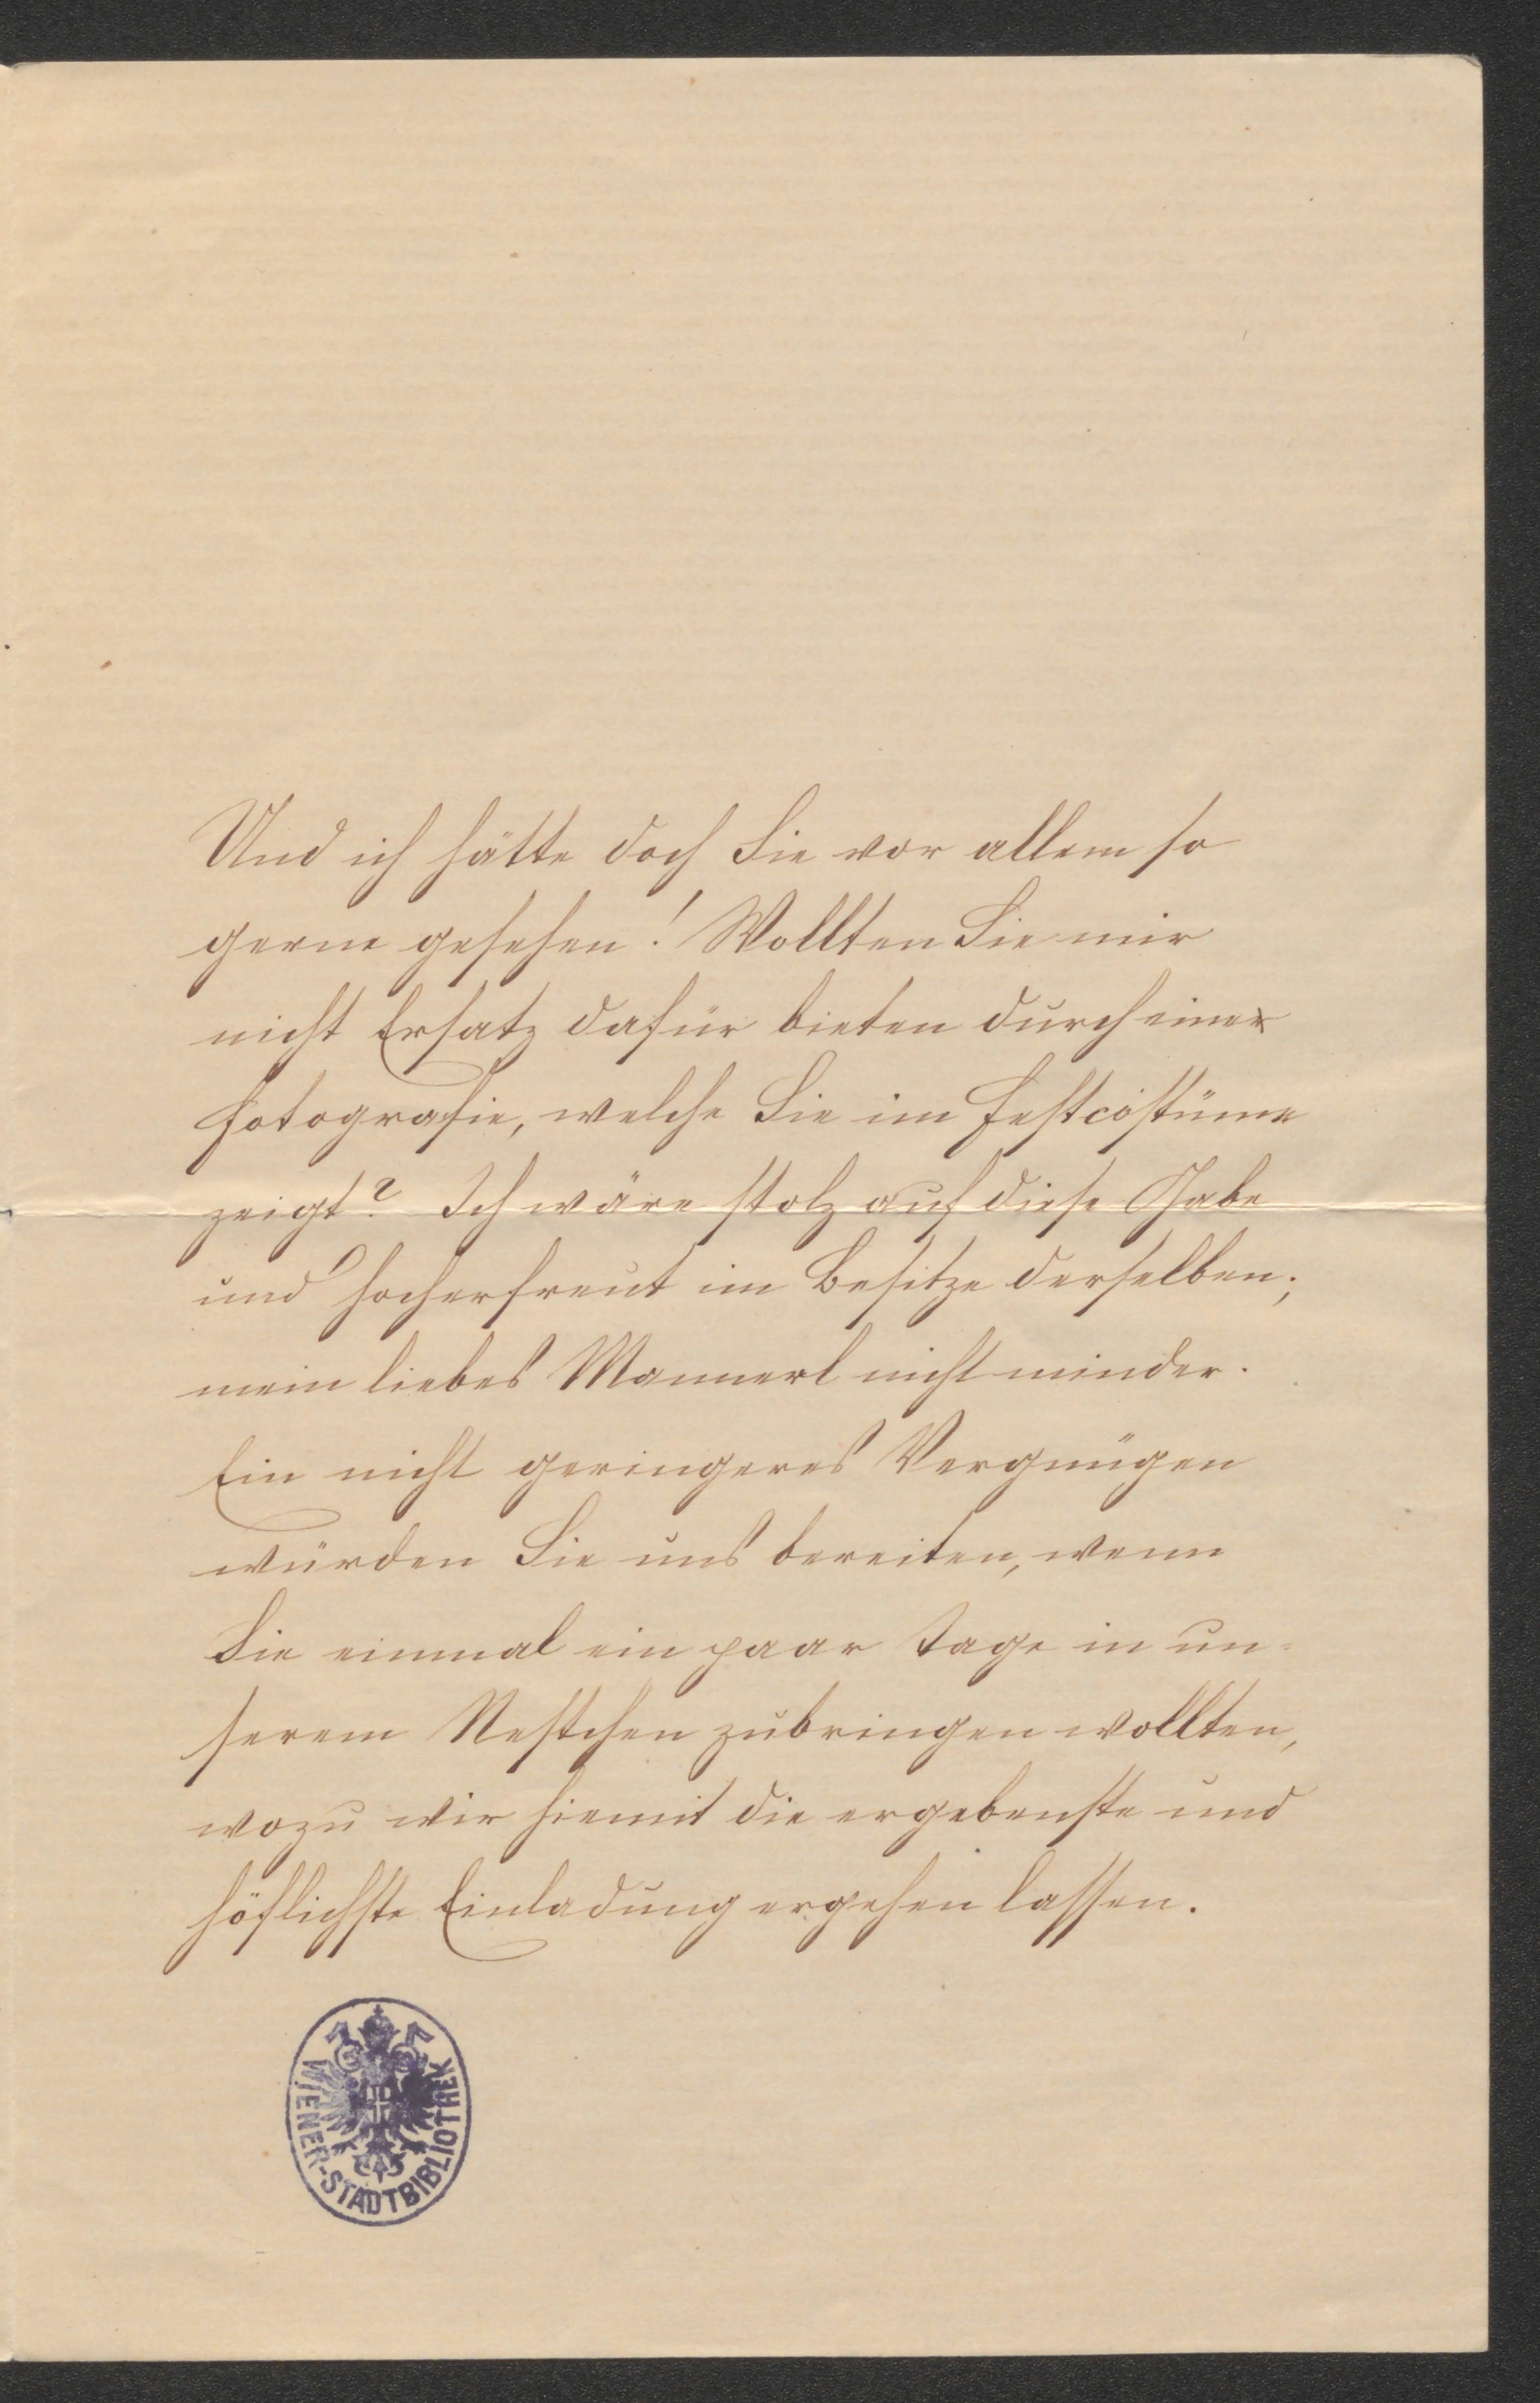 Und ich hätte doch Sie vor allem so
gerne gesehen! Wollten Sie mir
nicht Ersatz dafür bieten durch eine
Fotografie, welche Sie im Festcostüme
zeigt? Ich wäre stolz auf diese Gabe
und hocherfreut im Besitze derselben;
mein liebes Mannerl nicht minder.
Ein nicht geringeres Vergnügen
würden Sie uns bereiten, wenn
Sie einmal ein paar Tage in un-
serem Nestchen zubringen wollten,
wozu wir hiemit die ergebenste und
höflichste Einladung ergehen lassen.
WIENER-STADTBIBLIOTHEK